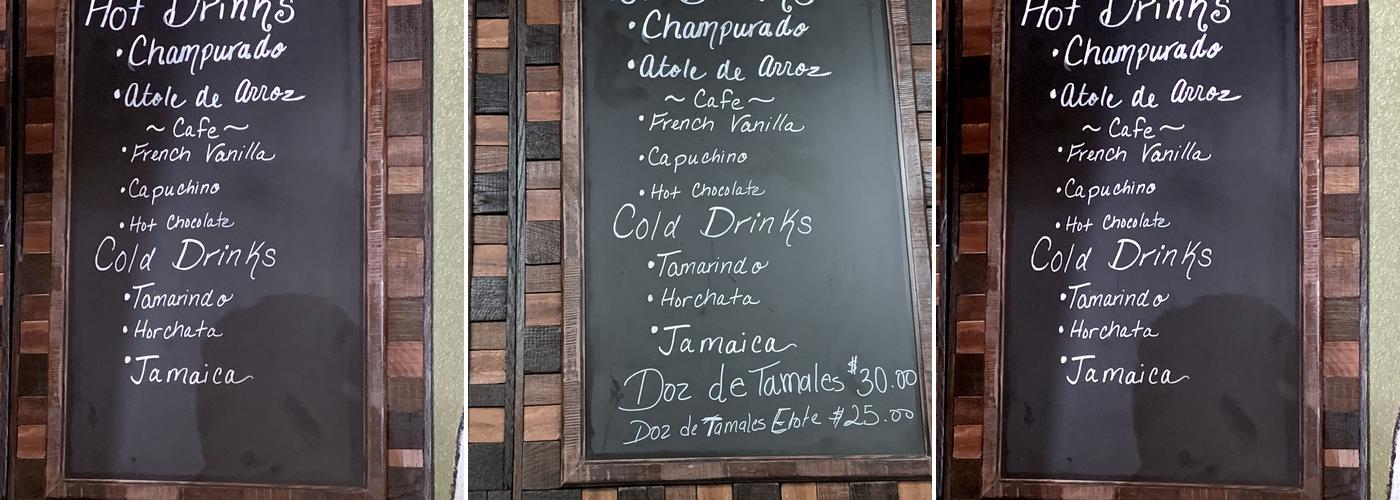 Hot Drinks
• Champurado
• Atole de Arroz
~ Cafe ~
• French Vanilla
• Capuchino
• Hot Chocolate
Cold Drinks
• Tamarindo
• Horchata
• Jamaica
• Champurado
• Atole de Arroz
~ Cafe ~
• French Vanilla
• Capuchino
• Hot Chocolate
Cold Drinks
• Tamarindo
• Horchata
• Jamaica
Doz de Tamales $30.00
Doz de Tamales Elote $25.00
Hot Drinks
• Champurado
• Atole de Arroz
~ Cafe ~
• French Vanilla
• Capuchino
• Hot Chocolate
Cold Drinks
• Tamarindo
• Horchata
• Jamaica